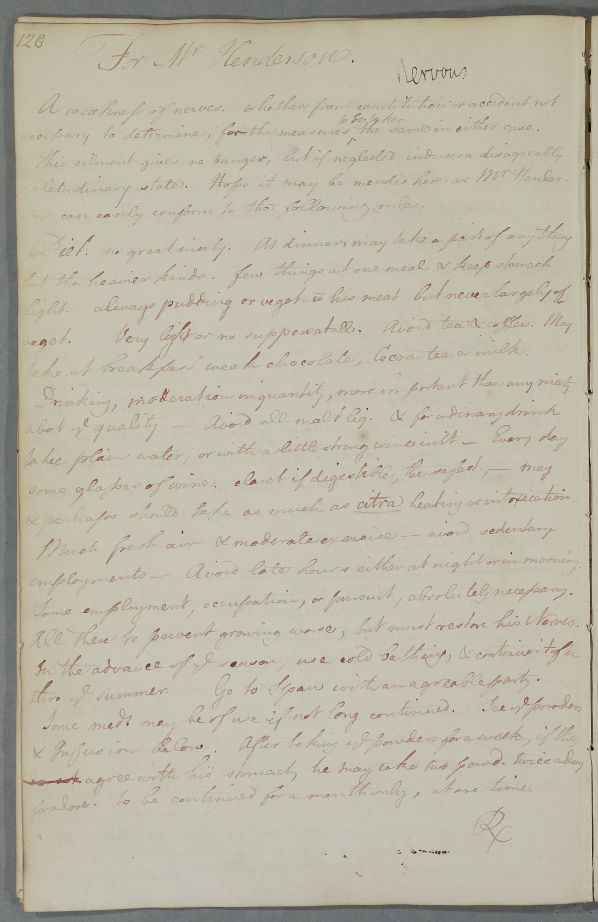 128
For Mr Henderson.
Nervous
A weakness of nerves. whether from constitution or accident not
to be taken
necessary to determine, for the measures the same in either case.
This ailment gives no danger, but if neglected induces a disagreably
valetudinary state. Hope it may be mended here as Mr Hender-
son can easily conform to the following rules.
Diet. no great nicety. At dinners may take a part of any thing
but the heavier kinds. few things at one meal & keep stomach
light. always pudding or veget. wt his meat but never largely of
veget. Very light or no suppers at all. Avoid tea & coffee. May
take at breakfast weak chocolate, Cocoa tea or milk.
Drinking, moderation in quantity, more important than any nicety
about ye quality — Avoid all malt liq. & for ordinary drink
take plain water, or with a little strong wine in it — Every day
some glasses of wine. claret if digestible, the safest, — may
& perhaps should take as much as citra heating or intoxication.
Much fresh air & moderate exercise — avoid sedentary
employments — Avoid late hours either at night or in morning.
Some employment, occupation, or pursuit, absolutely necessary.
All these to prevent growing worse, but must restore his Nerves.
In the advance of ye season, use cold bathing, & continue it
thro ye summer. Go to Spaw with an agreable party.
Some meds may be of use if not long continued. See ye powders
& Infusion below. After taking ye powders for a week, if they
agree with his stomach, he may take two powd. twice a day
for a dose. to be continued for a month only, at one time
℞